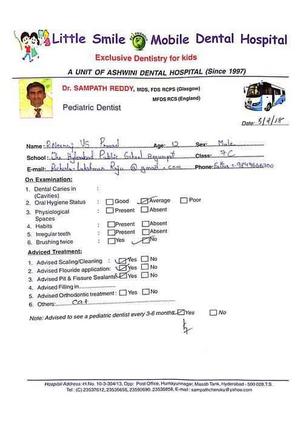 Little Smile Mobile Dental Hospital
Exclusive Dentistry for kids
A UNIT OF ASHWINI DENTAL HOSPITAL (Since 1997)
Dr. SAMPATH REDDY, MDS, FDS RCPS (Glasgow)
MFDS RCS (England)
Pediatric Dentist
Date:
Name: VS Age: Sex: Male
School: The Hyderabad Public School Begumpet Class: 7C
E-mail: Lakshman Raju @gmail.com Phone:
On Examination:
1. Dental Caries in
(Cavities)
2. Oral Hygiene Status Good Average Poor
3. Physiological Present Absent
Spaces
4. Habits Present Absent
5. Irregular teeth Present Absent
6. Brushing twice Yes No
Adviced Treatment:
1. Advised Scaling/Cleaning : Yes No
2. Advised Flouride application: Yes No
3. Advised Pit & Fissure Sealants Yes No
4. Advised Filling in
5. Advised Orthodontic treatment : Yes No
6. Others:
Note: Advised to see a pediatric dentist every 3-6 months Yes No
Hospital Address: H.No. 10-3-304/13, Opp: Post Office, Humayunnagar, Masab Tank, Hyderabad - 500 028.T.S.